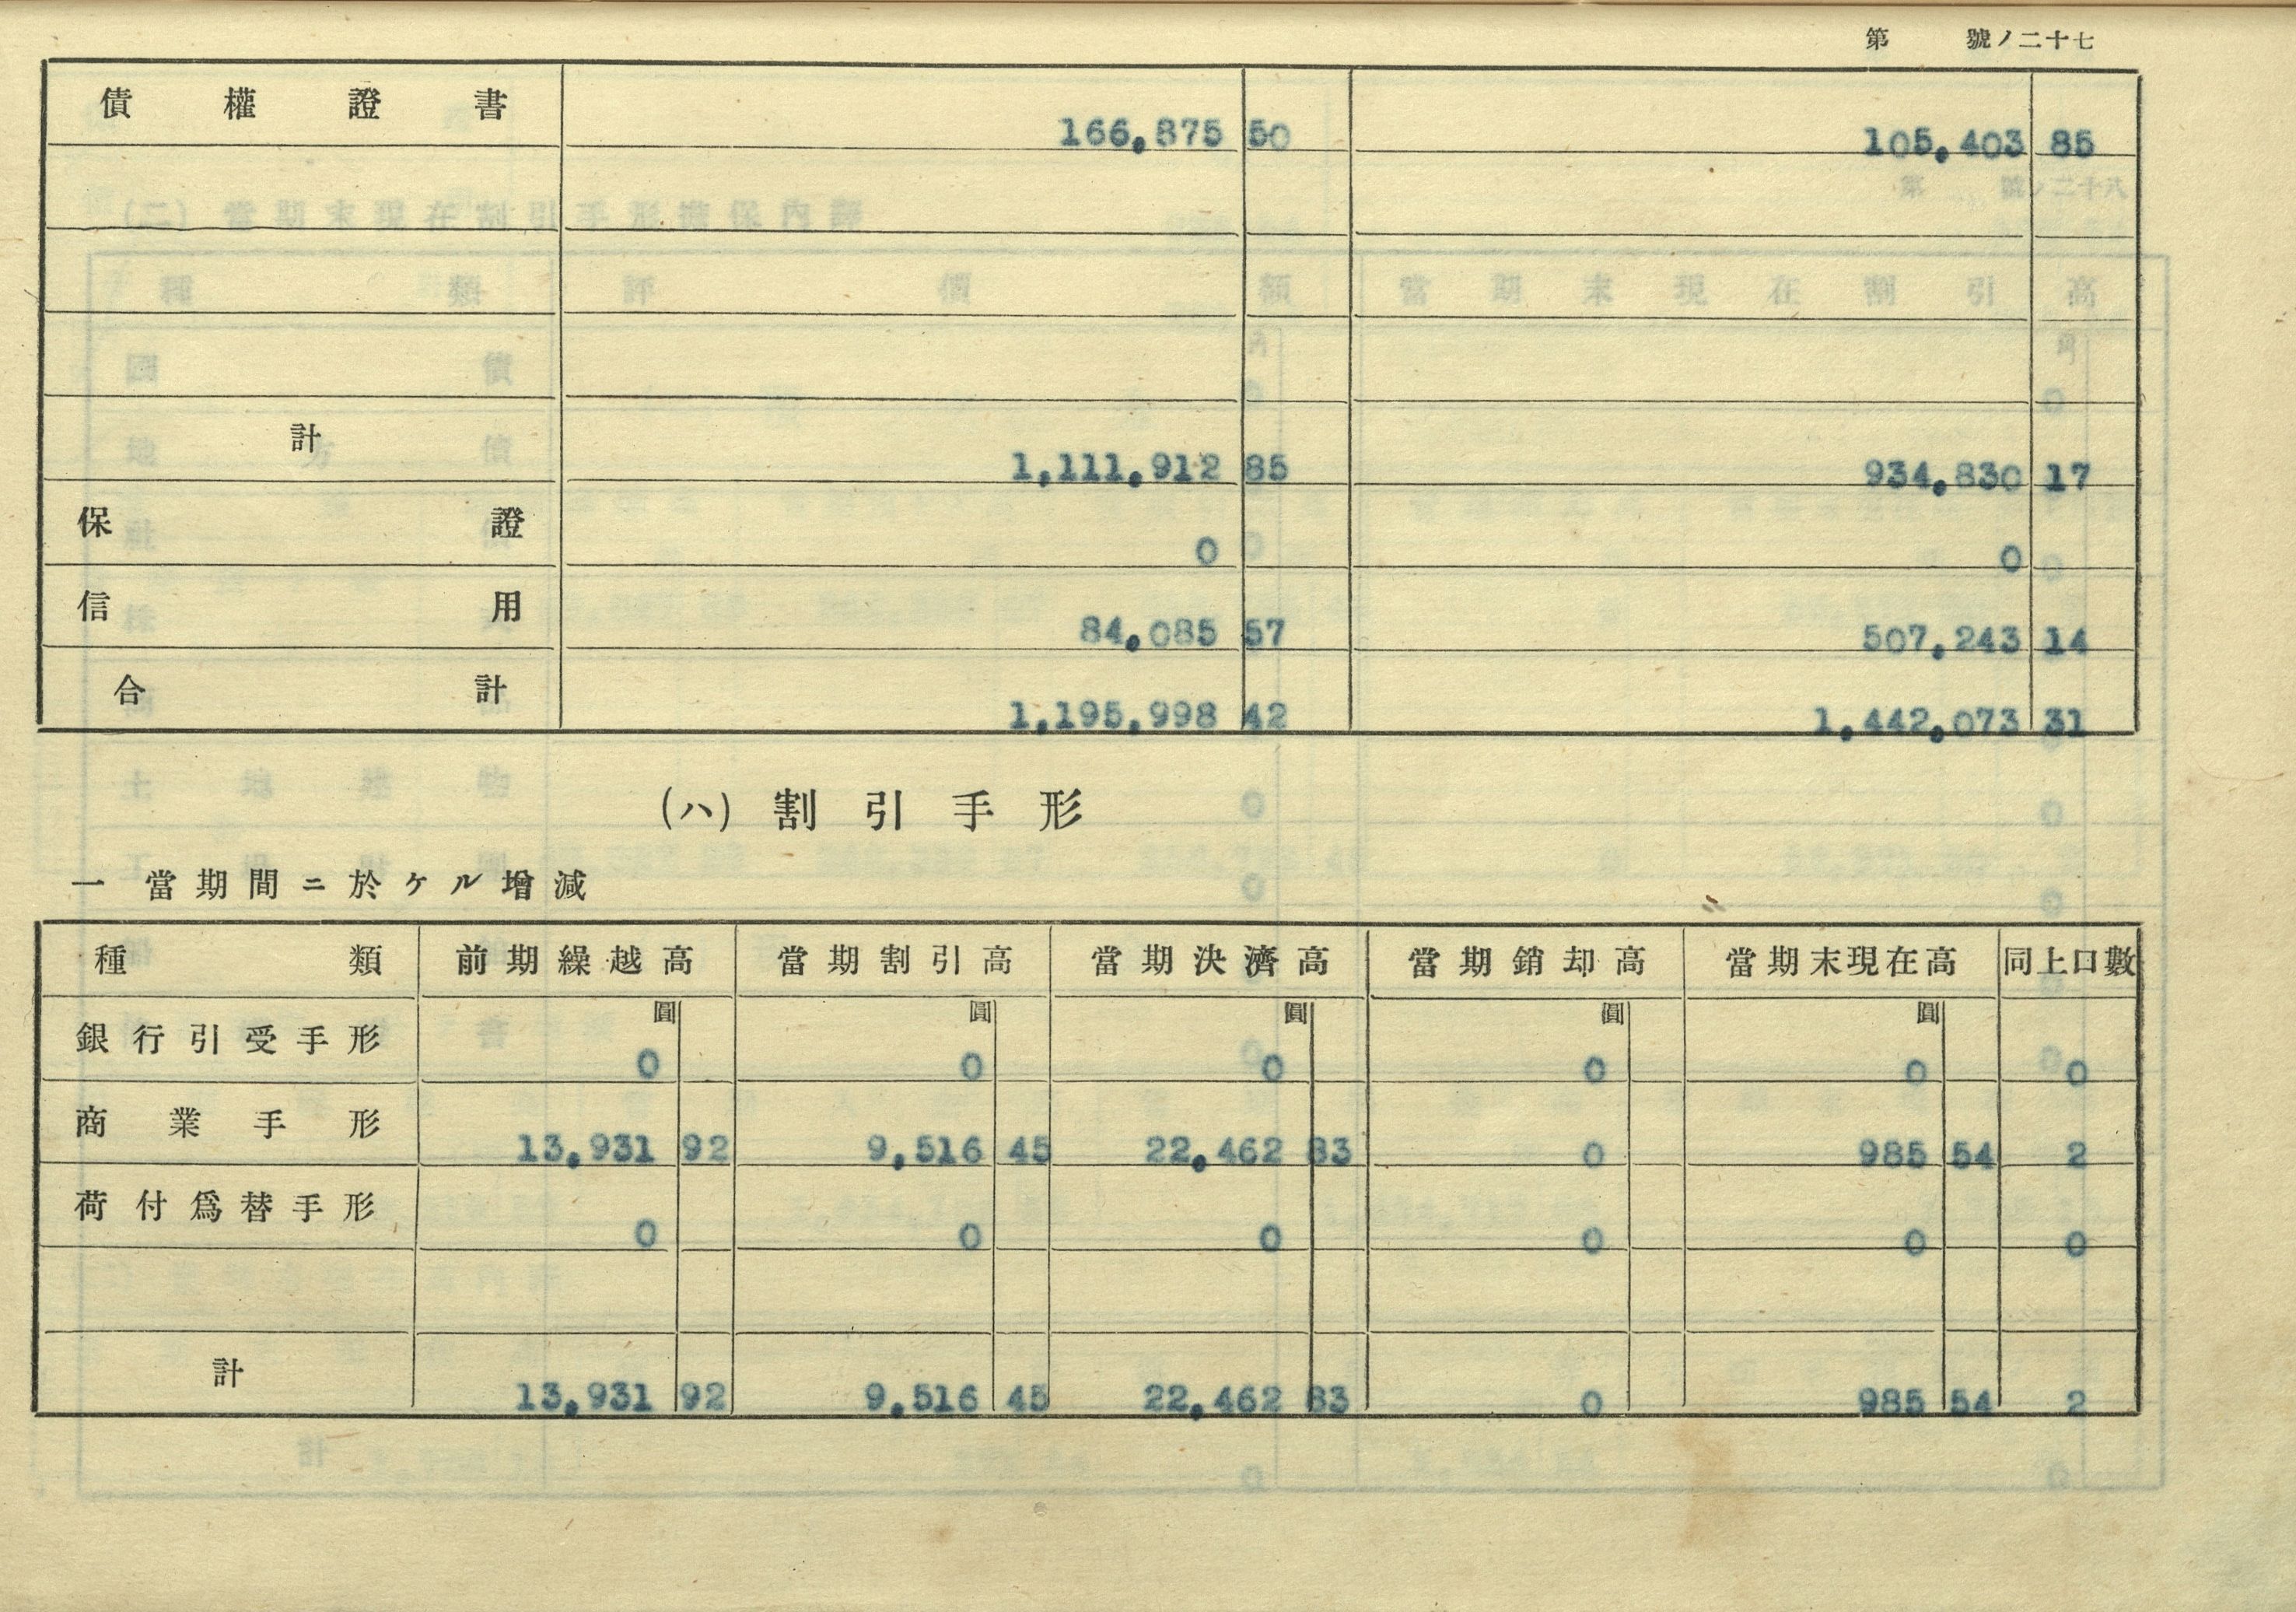 第 號ノ二十七
債權證書 166,875 50 105,403 85
計 1,111,912 85 934,830 17
保證 0 0
信用 84,085 57 507,243 14
合計 1,195,998 42 1,442,073 31
(ハ) 割引手形
一 當期間ニ於ケル增減
種類 前期繰越高 當期割引高 當期決濟高 當期銷却高 當期末現在高 同上口數
圓 圓 圓 圓 圓
銀行引受手形 0 0 0 0 0 0
商業手形 13,931 92 9,516 45 22,462 83 0 985 54 2
荷付爲替手形 0 0 0 0 0 0
計 13,931 92 9,516 45 22,462 83 0 985 54 2